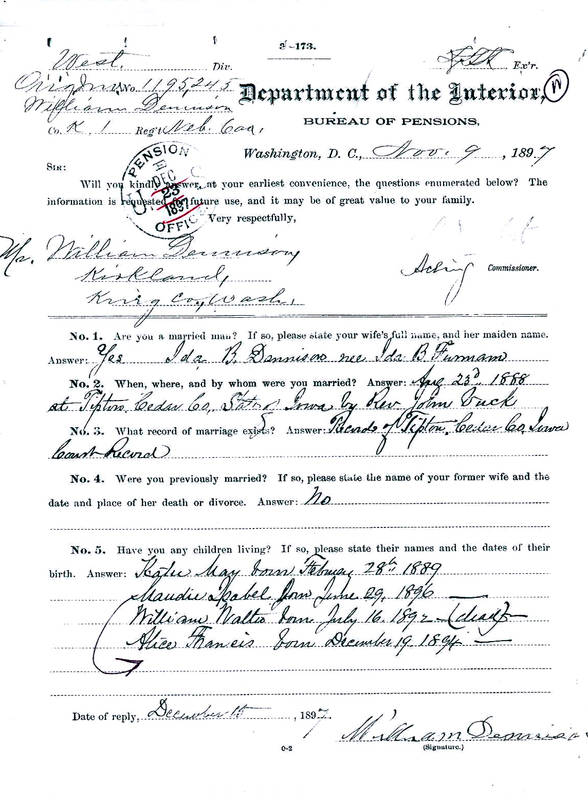 3-173.
West, Div. Ex'r.
No. 1195,245
William Dennison
Department of the Interior,
Co. K. 1 Reg't Neb. Cav,
BUREAU OF PENSIONS,
Washington, D. C., Nov. 9, 1897
PENSION
DEC
23
1897
U.S.
OFFICE
SIR:
Will you kindly answer, at your earliest convenience, the questions enumerated below? The
information is requested for future use, and it may be of great value to your family.
Very respectfully,
Mr. William Dennison,
Kirkland,
King Co, Wash.
Acting Commissioner.
No. 1. Are you a married man? If so, please state your wife's full name, and her maiden name.
Answer: Yes Ida B. Dennison nee Ida B. Furmam
No. 2. When, where, and by whom were you married? Answer: Aug 23d 1888
at Tipton, Cedar Co, State of Iowa by Rev John
No. 3. What record of marriage exists? Answer: Records of Tipton, Cedar Co, Iowa
Court Record
No. 4. Were you previously married? If so, please state the name of your former wife and the
date and place of her death or divorce. Answer: No
No. 5. Have you any children living? If so, please state their names and the dates of their
birth. Answer: Katie May born February 28th 1889
Maudie Isabel born June 29, 1896
William Walter born July 16. 1892 - (dead) -
Alice Francis born December 19. 1894 -
Date of reply, December 15, 1897.
William Dennison
(Signature.)
0-2